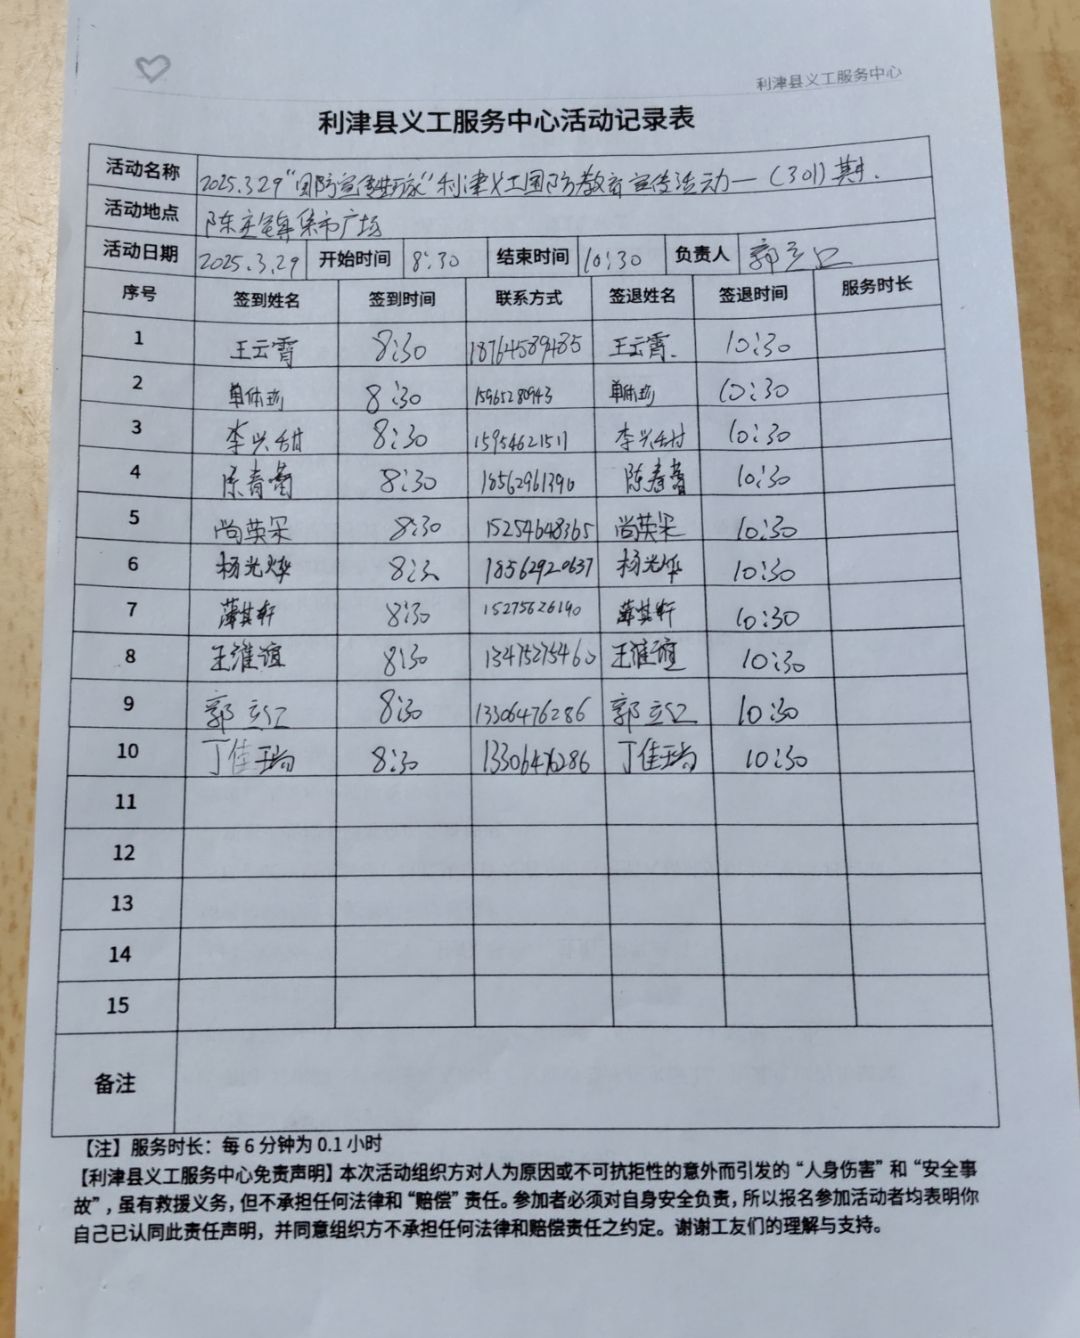 利津县义工服务中心
利津县义工服务中心活动记录表
活动名称 2025.3.29“国防宣传进万家”利津义工国防教育宣传活动—(301)期.
活动地点 陈庄镇集市广场
活动日期 2025.3.29 开始时间 8:30 结束时间 10:30 负责人 郭立江
序号 签到姓名 签到时间 联系方式 签退姓名 签退时间 服务时长
1 王云霄 8:30 18764589485 王云霄. 10:30
2 8:30 15965280943 10:30
3 李兴甜 8:30 15954621511 李兴甜 10:30
4 陈春蕾 8:30 18562961390 陈春蕾 10:30
5 尚英杲 8:30 15254648365 尚英杲 10:30
6 杨光烨 8:3 18562920637 杨光烨 10:30
7 薄其轩 8:30 15275626190 薄其轩 10:30
8 王淮谊 8:30 13475275460 王淮谊 10:30
9 郭立江 8:30 13306476286 郭立江 10:30
10 丁佳瑞 8:30 13306476286 丁佳瑞 10:30
11
12
13
14
15
备注
【注】服务时长：每6分钟为0.1小时
【利津县义工服务中心免责声明】本次活动组织方对人为原因或不可抗拒性的意外而引发的“人身伤害”和“安全事
故”，虽有救援义务，但不承担任何法律和“赔偿”责任。参加者必须对自身安全负责，所以报名参加活动者均表明你
自己已认同此责任声明，并同意组织方不承担任何法律和赔偿责任之约定。谢谢工友们的理解与支持。